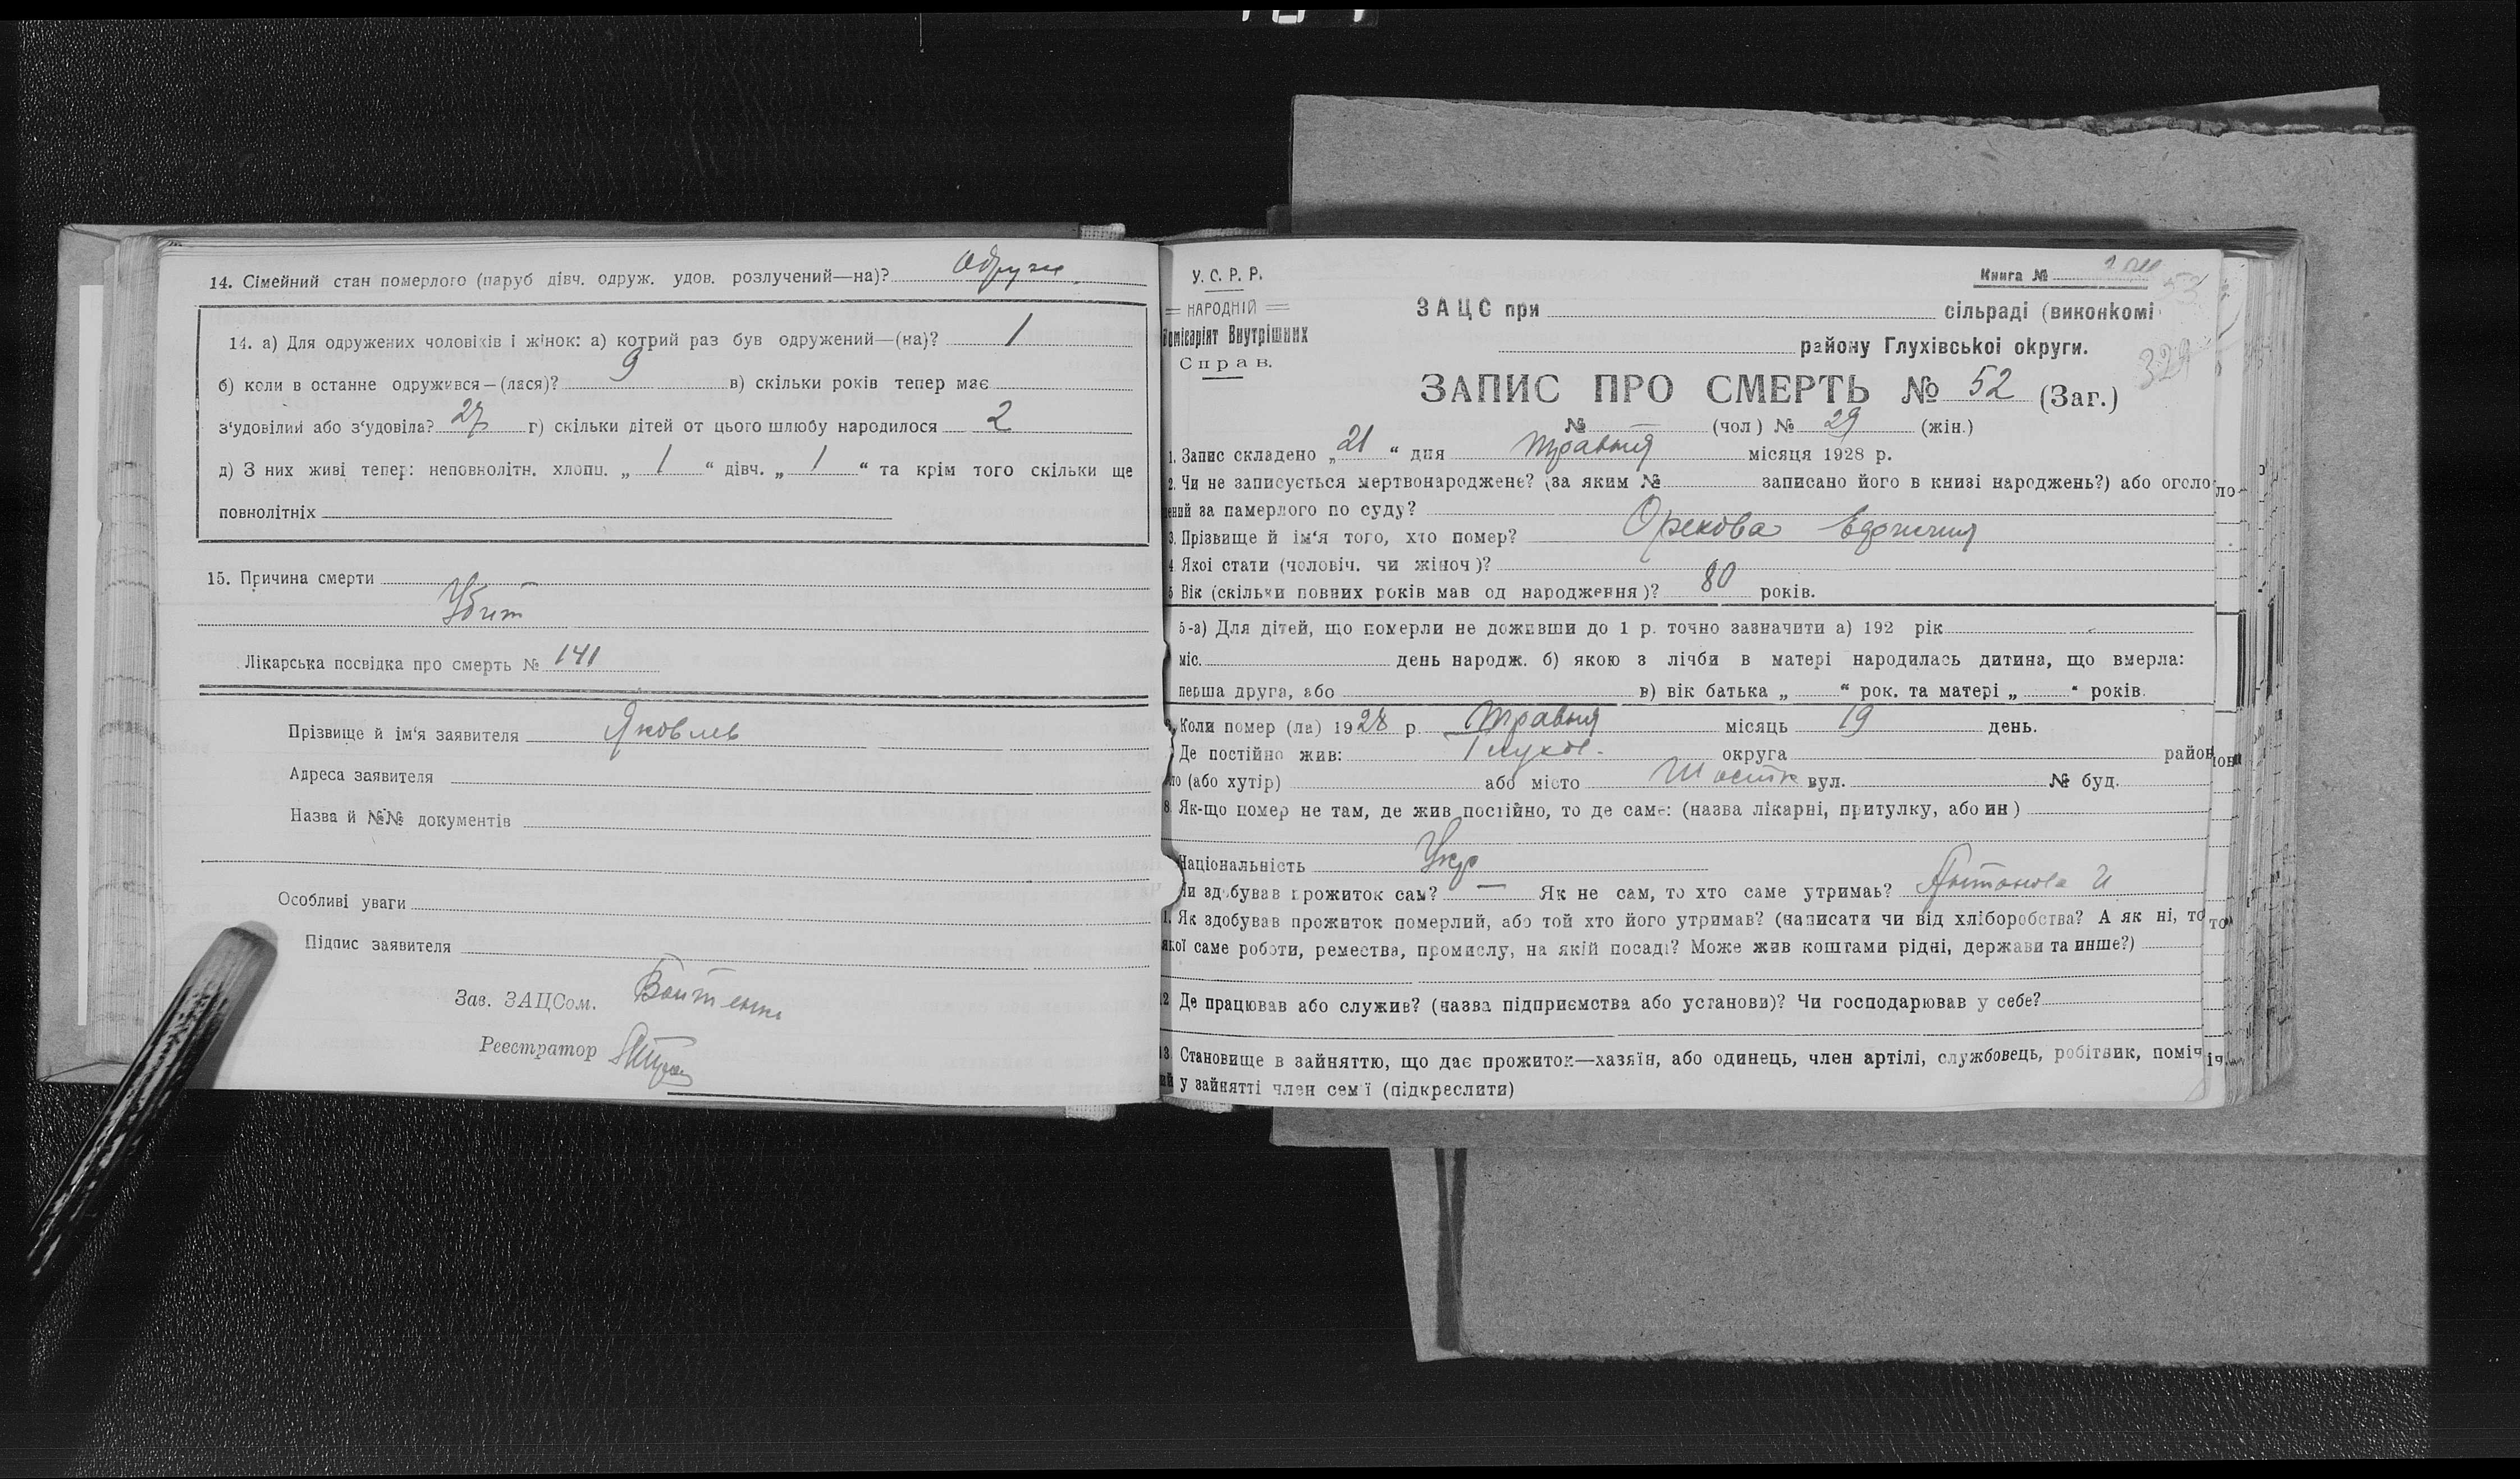 14. Сімейний стан померлого (паруб дівч. одруж. удов. розлучений—на)? Одруж
14. а) Для одружених чоловіків і жінок: а) котрий раз був одружений—(на)? 1
б) коли в останне одружився—(лася)? 9 в) скільки років тепер має
з'удовілий або з'удовіла? 27 г) скільки дітей от цього шлюбу народилося 2
д) З них живі тепер: неповнолітн. хлопц. „ 1 “ дівч. „ 1 “ та крім того скільки ще
повнолітніх
15. Причина смерти
Убит
Лікарська посвідка про смерть № 141
Прізвище й ім'я заявителя Яковлев
Адреса заявителя
Назва й №№ документів
Особливі уваги
Підпис заявителя
Зав. ЗАЦСом.
Реєстратор
У. С. Р. Р.
НАРОДНІЙ
Комісаріят Внутрішних
Справ.
Книга №
53
ЗАЦС при сільраді (виконкомі
району Глухівської округи.
329
ЗАПИС ПРО СМЕРТЬ № 52 (Заг.)
№ (чол) № 29 (жін.)
1. Запис складено „ 21 “ дня травня місяця 1928 р.
2. Чи не записується мертвонароджене? (за яким № записано його в книзі народжень?) або оголо
ений за памерлого по суду?
3. Прізвище й ім'я того, хто помер? Орехова
4 Якої стати (чоловіч. чи жіноч)?
5 Вік (скільки повних років мав од народження)? 80 років.
5-а) Для дітей, що померли не доживши до 1 р. точно зазначити а) 192 рік
міс. день народж. б) якою з лічби в матері народилась дитина, що вмерла:
перша друга, або в) вік батька „ “ рок. та матері „ “ років.
Коли помер (ла) 1928 р. травня місяць 19 день.
Де постійно жив: Глухов. округа район
ло (або хутір) або місто Шостк вул. № буд.
8. Як-що помер не там, де жив постійно, то де саме: (назва лікарні, притулку, або ин)
Національність Укр
Чи здобував прожиток сам? — Як не сам, то хто саме утримав? Антонова И
1. Як здобував прожиток померлий, або той хто його утримав? (написати чи від хліборобства? А як ні, то
якої саме роботи, ремества, промислу, на якій посаді? Може жив коштами рідні, держави та инше?)
12 Де працював або служив? (назва підприємства або установи)? Чи господарював у себе?
13. Становище в зайняттю, що дає прожиток—хазяїн, або одинець, член артілі, службовець, робітник, поміч
ий у зайнятті член сем'ї (підкреслити)